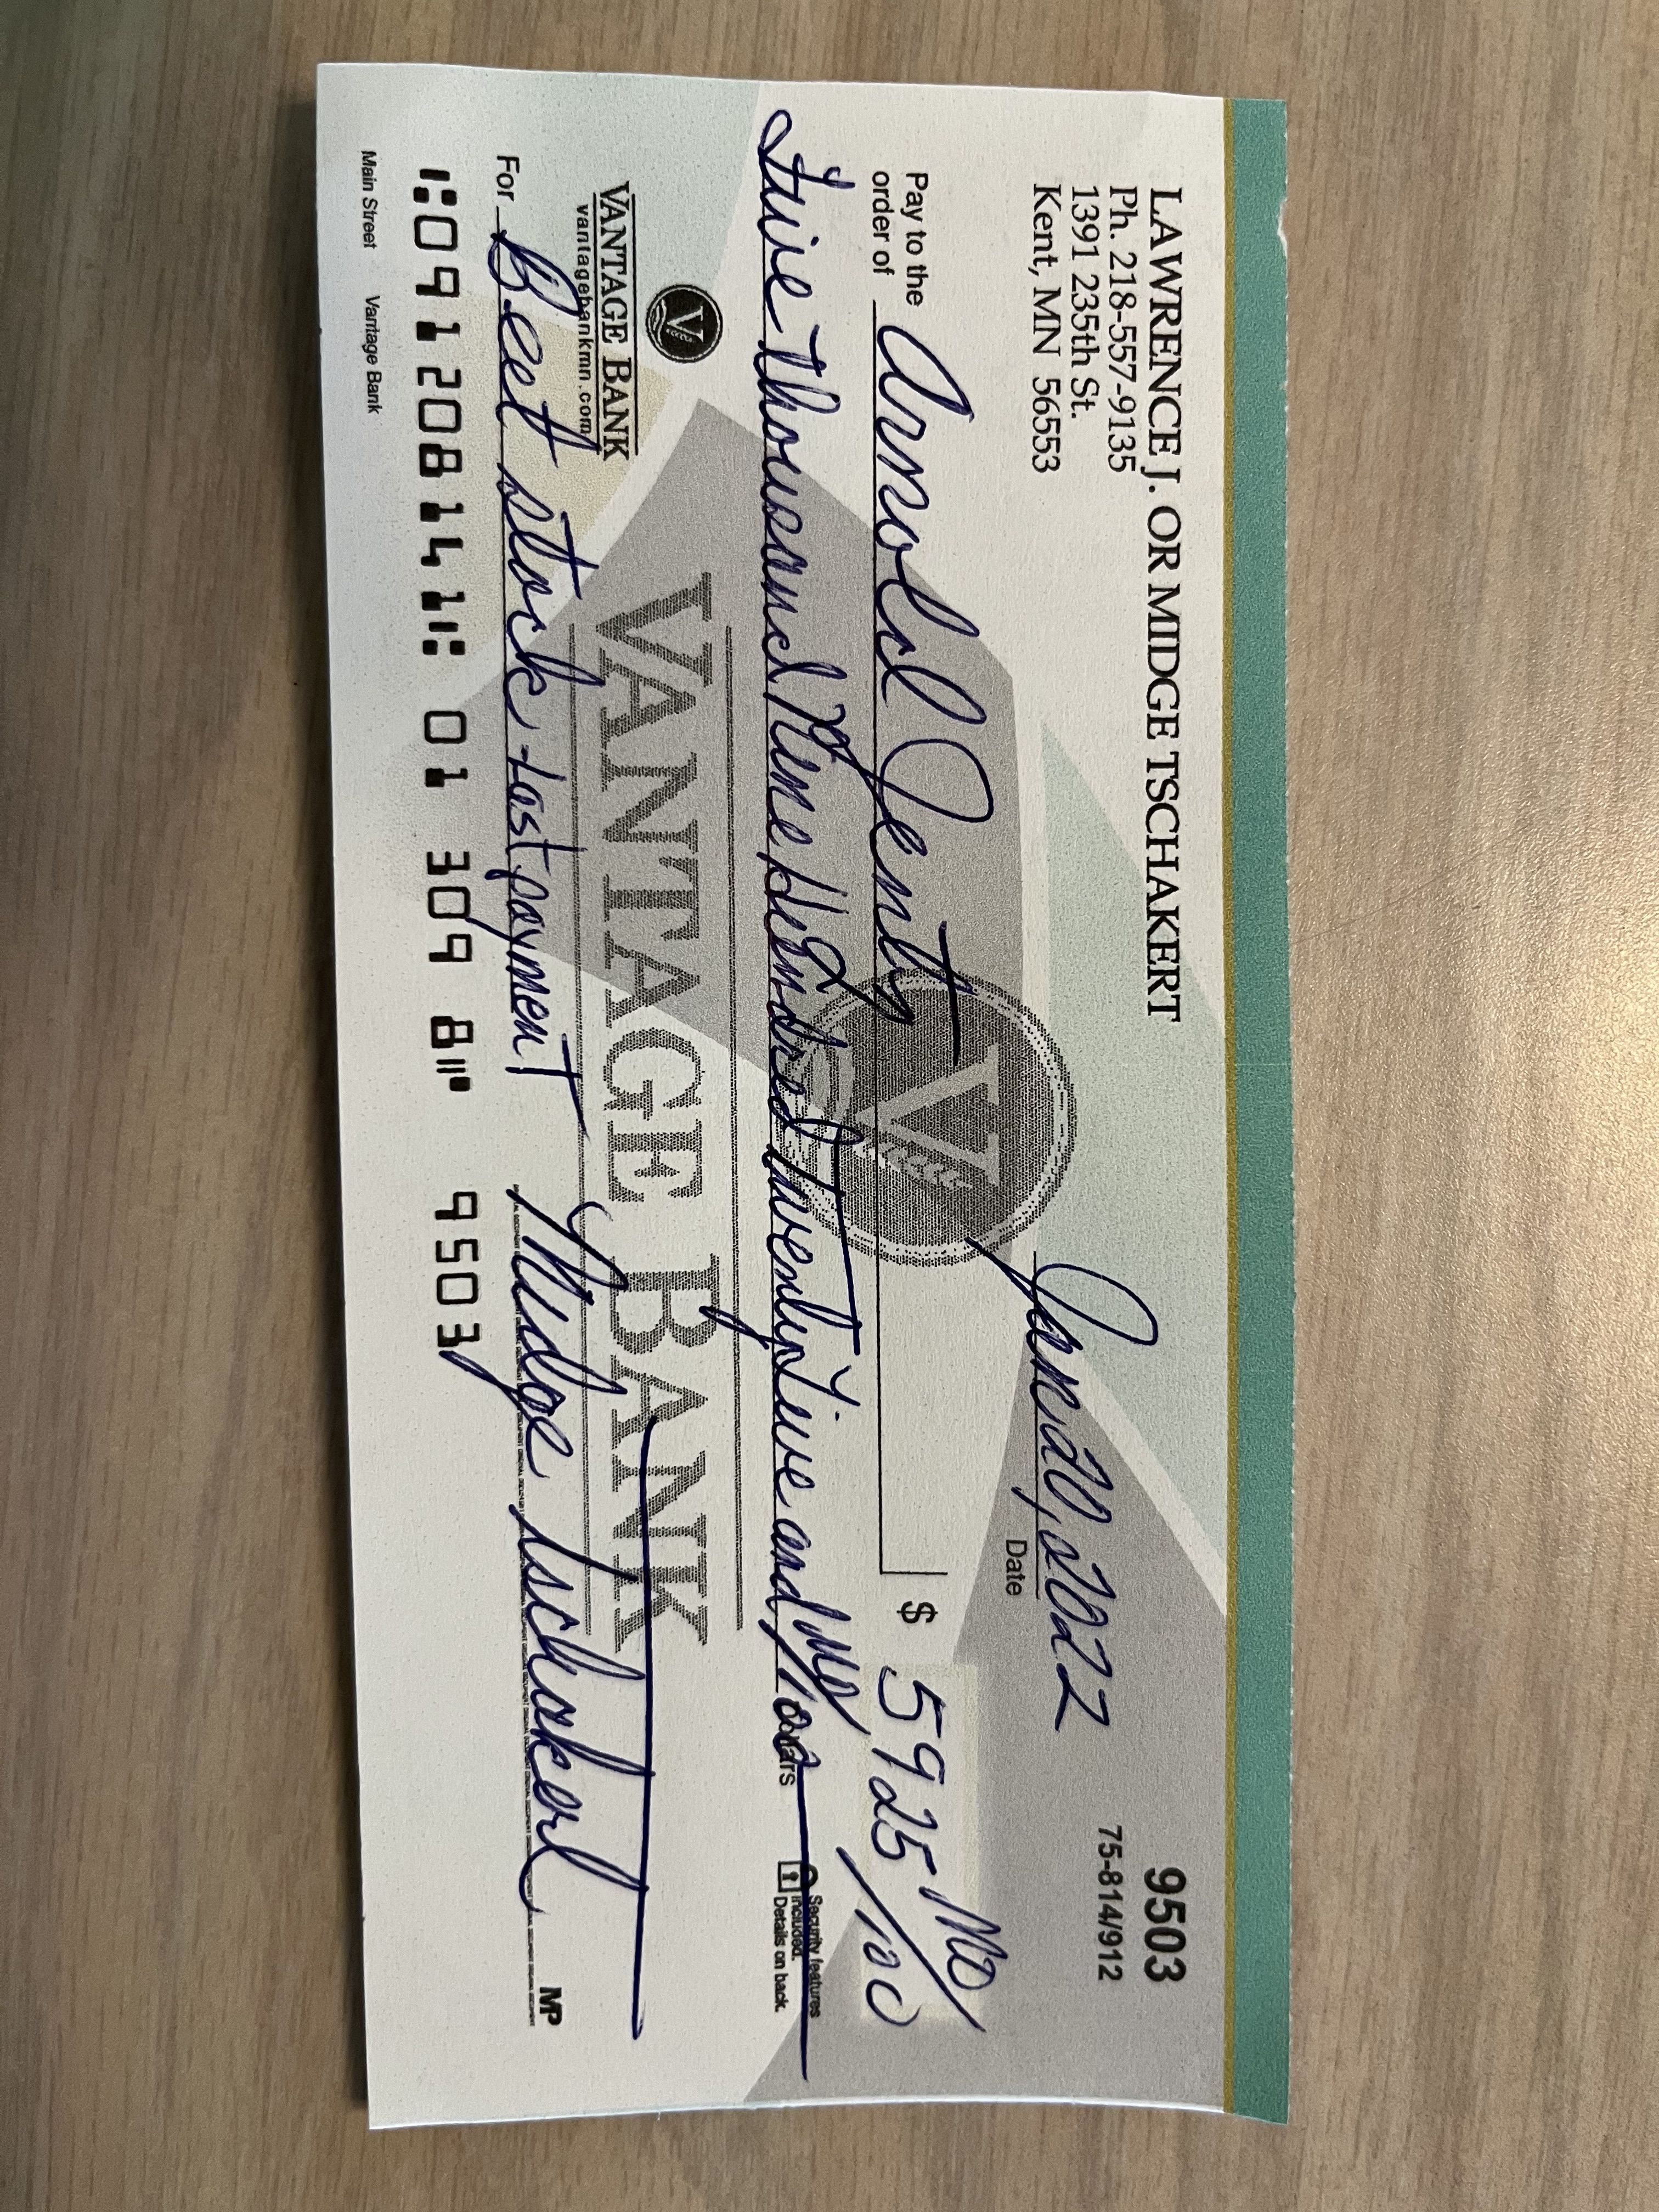 LAWRENCE J. OR MIDGE TSCHAKERT
Ph. 218-557-9135
1391 235th St.
Kent, MN 56553
9503
75-814/912
June 21, 2022
Date
Pay to the order of Arnold Jentz $ 5925 no/100
Five thousand Nine Hundred twenty five and no/100 Dollars
Security features included. Details on back.
VANTAGE BANK
VANTAGE BANK
vantagebankmn.com
For Beet stock - last payment Midge Tschakert MP
⑆091208141⑆ 01 309 8⑈ 9503
Main Street Vantage Bank